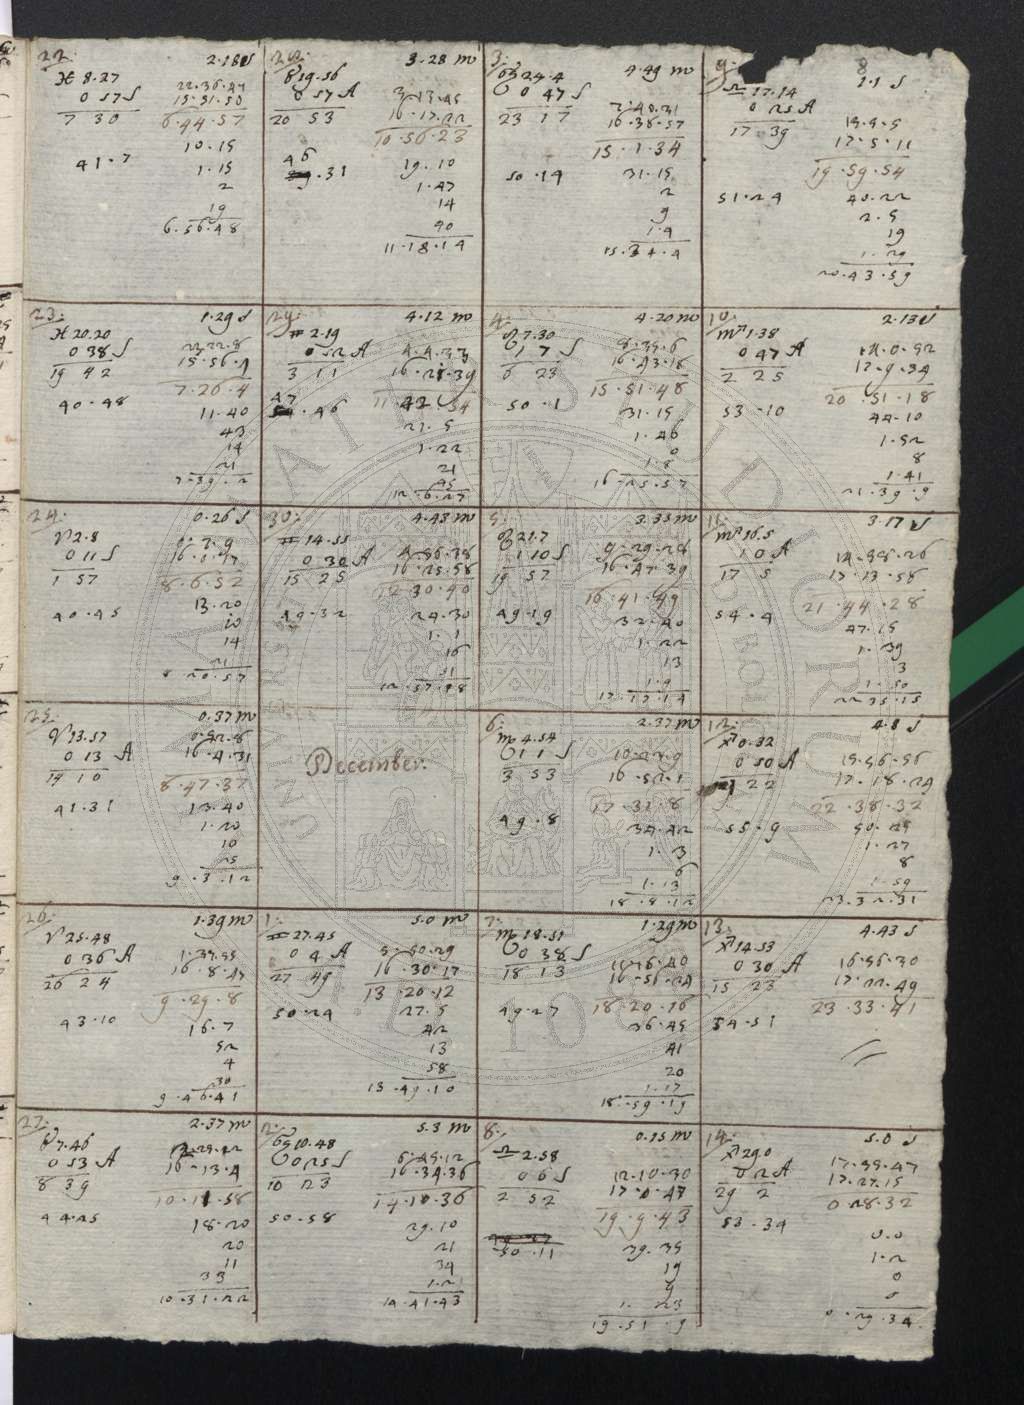 22. 2.18 S
♓ 8.27 22.36.47
0 57 S 15.51.50
7 30 6.44.57
10.15
41.7 1.15
2
19
6.56.48
23. 1.29 S
♓ 20.20 22.22.8
0 38 S 15.56.1
19 42 7.26.4
40.48 11.40
43
14
21
7.39.2
24. 0.26 S
♈ 2.8 0.7.9
0 11 S
1 57 8.6.52
13.20
40.45 10
14
21
8.20.57
25. 0.37 m
♈ 13.57 0.42.8
0 13 A 16.4.31
14 10 8.47.37
41.31 13.40
1.20
10
25
9.3.12
26. 1.39 m
♈ 25.48
0 36 A 16.8.47
26 24 9.29.8
43.10 16.7
52
4
30
9.46.41
27. 2.37 m
♉ 7.46
0 53 A 16.13.4
8 39 10.11.58
44.25 18.20
20
11
33
10.31.22
28. 3.28 m
♉ 19.56 3.13.45
0 57 A 16.17.22
20 53 10.56.23
46
.31 19.10
1.47
14
40
11.18.14
29. 4.12 m
♊ 2.19 4.4.33
0 52 A 16.21.39
3 11 11.42.54
47
.46 21.5
1.22
21
45
12.6.27
30. 4.43 m
♊ 14.55 4.56.38
0 30 A 16.25.58
15 25 12.30.40
49.32 24.30
1.1
16
51
12.57.18
December.
1. 5.0 m
♊ 27.45 5.50.29
0 4 A 16.30.17
27 49 13.20.12
50.24 27.5
42
13
58
13.49.10
2. 5.3 m
♋ 10.48 6.45.12
0 25 S 16.34.36
10 23 14.10.36
50.58 29.10
21
34
1.21
14.41.43
3. 4.49 m
♋ 24.4 7.40.31
0 47 S 16.38.57
23 17 15.1.34
50.14 31.15
2
9
1.4
15.34.4
4. 4.20 m
♌ 7.30 8.35.6
1 7 S 16.43.18
6 23 15.51.48
50.1 31.15
1.46
0
1.8
16.25.57
5. 3.35 m
♌ 21.7 9.29.28
1 10 S 16.47.39
19 57 16.41.49
49.19 32.40
1.22
13
1.9
17.17.14
6. 2.37 m
♍ 4.54 10.23.9
1 1 S 16.52.1
3 53 17.31.8
49.8 34.42
1.3
6
1.13
18.8.12
7. 1.29 m
♍ 18.51 11.16.40
0 38 S 16.56.24
18 13 18.20.16
49.27 36.45
41
20
1.17
18.59.19
8. 0.15 m
♎ 2.58 12.10.30
0 6 S 17.0.47
2 52 19.9.43
50.11 39.35
19
8
1.23
19.51.9
8
9. 1.1 S
♎ 17.14 13.5.5
0 25 A 17.5.11
17 39 19.59.54
51.24 40.22
2.5
19
1.29
20.43.59
10. 2.13 S
♏ 1.38 14.0.52
0 47 A 17.9.34
2 25 20.51.18
53.10 44.10
1.52
8
1.41
21.39.9
11. 3.17 S
♏ 16.5 14.58.26
1 0 A 17.13.58
17 5 21.44.28
54.4 47.15
1.39
3
1.50
22.35.15
12. 4.8 S
♐ 0.32 15.56.56
0 50 A 17.18.24
1 22 22.38.32
55.9 50.25
1.27
8
1.59
23.32.31
13. 4.43 S
♐ 14.53 16.56.30
0 30 A 17.22.49
15 23 23.33.41
54.51
14. 5.0 S
♐ 29.0 17.55.47
0 2 A 17.27.15
29 2 0.28.32
53.34 0.0
1.2
0
0
0.29.34